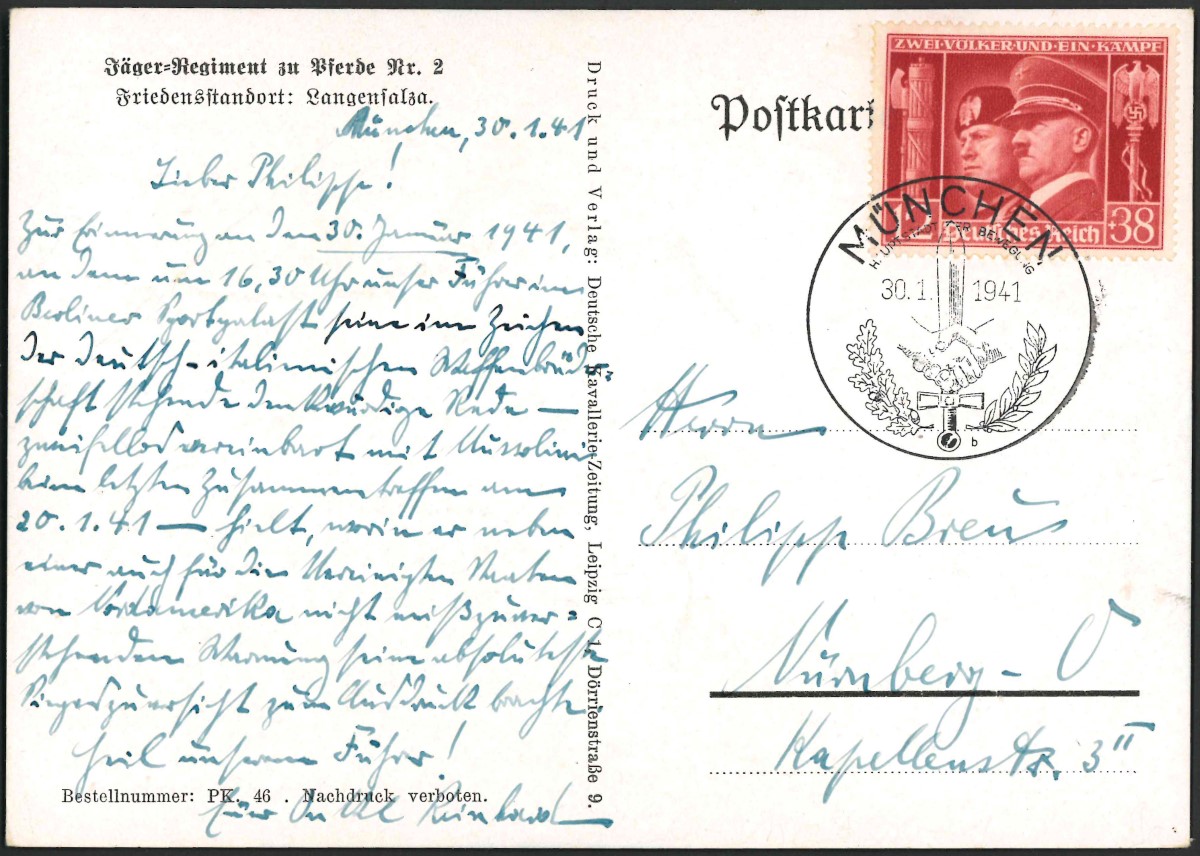 Jäger-Regiment zu Pferde Nr. 2
Friedensstandort: Langensalza.
München, 30.1.41
Lieber Philipp!
Zur Erinnerung an den 30. Januar 1941,
an dem um 16,30 Uhr unser Führer im
Berliner Sportpalast seine im Zeichen
der deutsch-italienischen Waffenbrüder-
schaft stehende denkwürdige Rede —
zweifellos vereinbart mit Mussolini
beim letzten Zusammentreffen am
20.1.41 — hielt, worin er neben
einer auch für die Vereinigten Staaten
von Nordamerika nicht mißzuver-
stehenden Warnung seine absolute
Siegeszuversicht zum Ausdruck brachte.
Heil unserem Führer!
Euer Onkel
Bestellnummer: PK. 46 . Nachdruck verboten.
Druck und Verlag: Deutsche Kavallerie-Zeitung, Leipzig C 1, Dörrienstraße 9.
Postkart
ZWEI·VÖLKER·UND·EIN·KAMPF
12 Deutsches Reich +38
MÜNCHEN
HAUPTSTADT DER BEWEGUNG
30.1. 1941
b
Herrn
Philipp Breus
Nürnberg-O
Kapellenstr. 3 II